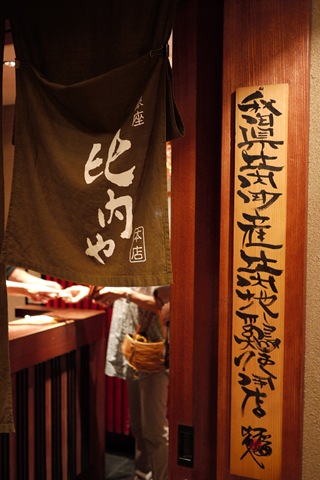 座
比内や
本店
秋田県比内産比内地鶏